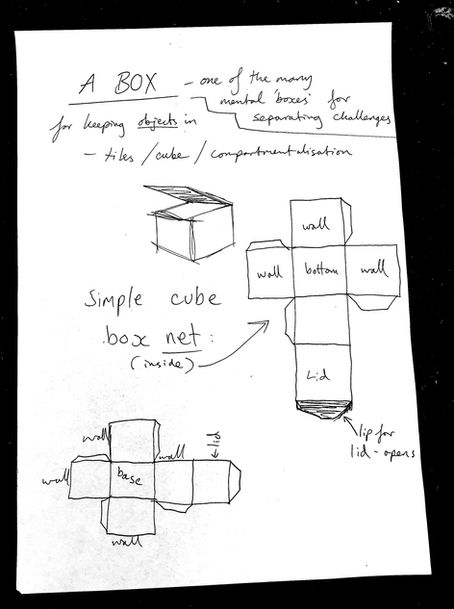 A BOX - one of the many
mental 'boxes' for
for keeping objects in separating challenges
- tiles / cube / compartmentalisation
wall
wall bottom wall
Simple cube
box net:
(inside)
Lid
lip for
lid - opens
wall
wall
lid
wall
base
wall